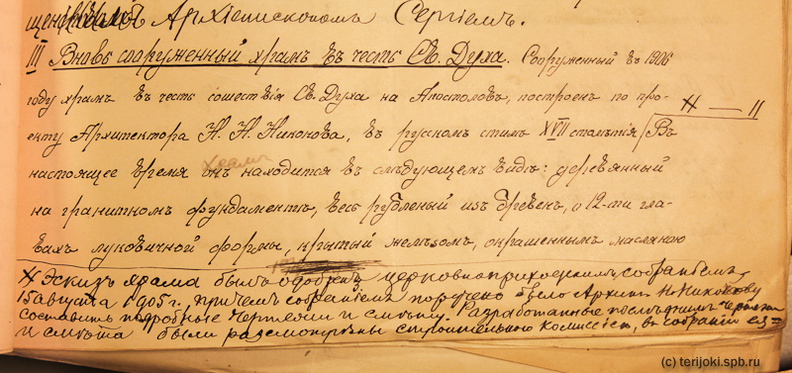 Архіепископомъ Сергіемъ.
III Вновь сооруженный храмъ въ честь Св. Духа. Сооруженный въ 1906
году храмъ въ честь сошествія Св. Духа на Апостоловъ, построенъ по про-
# — II
екту Архитектора Н. Н. Никонова, въ русскомъ стилѣ XVII столѣтія / Въ
храмъ
настоящее время онъ находится въ слѣдующемъ видѣ: деревянный
на гранитномъ фундаментѣ, весь рубленый изъ бревенъ, о 12-ти гла-
вахъ луковичной формы, крытый желѣзомъ, окрашеннымъ масляною
# Эскизъ храма былъ одобренъ церковноприходскимъ собраніемъ
15 августа 1905 г., причемъ собраніемъ поручено было Архит. Н. Никонову
составить подробные чертежи и смѣту. Разработанные послѣднимъ чертежи
и смѣта были разсмотрѣны строительной комиссіей, въ собраніи ея
(c) terijoki.spb.ru